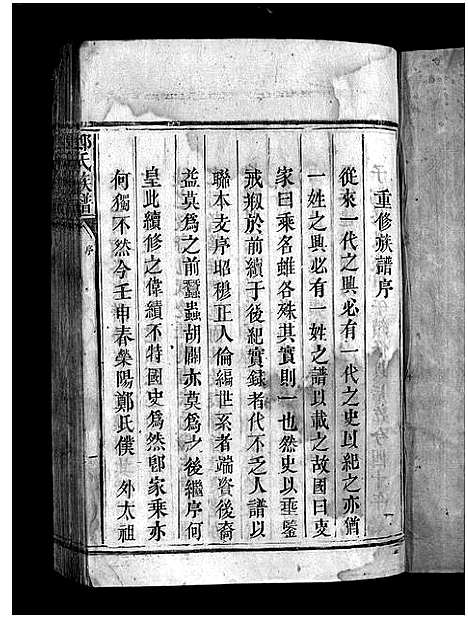 重修族譜序
從來一代之興必有一代之史以紀之亦猶
一姓之興必有一姓之譜以載之故國曰史
家曰乘名雖各殊其實則一也然史以垂鑒
戒褒於前續于後紀實録者代不乏人譜以
聯本支序昭穆正人倫編世系者端資後裔
益莫爲之前蠶蟲胡闢亦莫爲之後繼序何
皇此續修之偉績不特國史爲然卽家乘亦
何獨不然今壬申春滎陽鄭氏僕 外太祖
鄭氏族譜
序